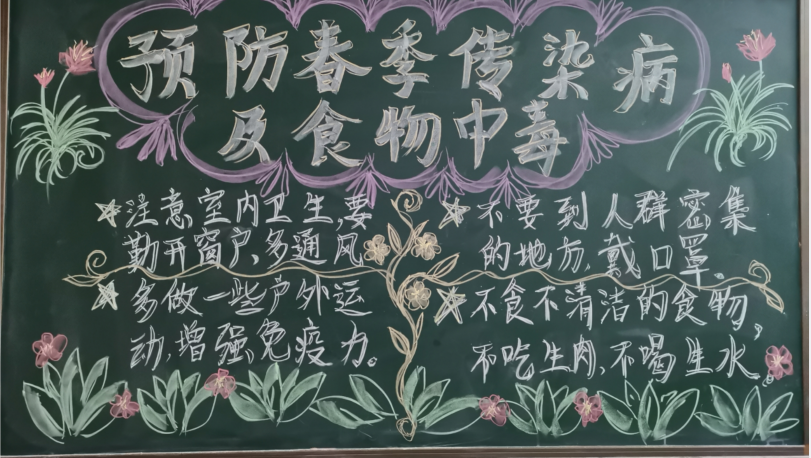 预防春季传染病
及食物中毒
☆注意室内卫生,要
勤开窗户,多通风
☆多做一些户外运
动,增强免疫力。
☆不要到人群密集
的地方,戴口罩。
☆不食不清洁的食物,
不吃生肉,不喝生水。